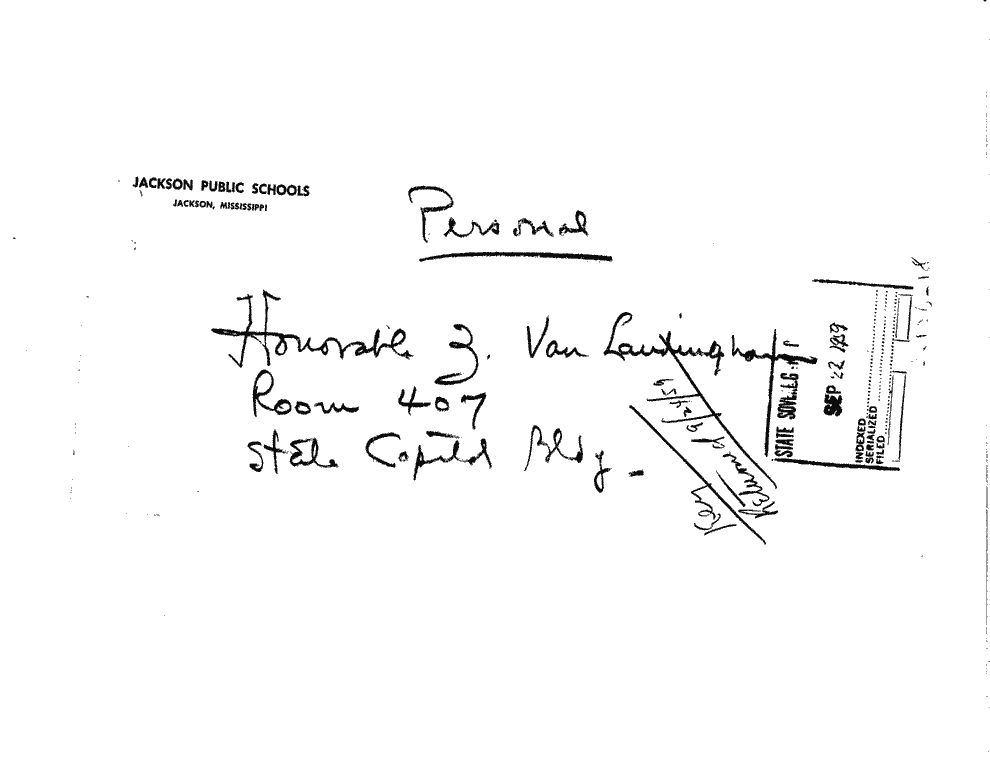 JACKSON PUBLIC SCHOOLS
JACKSON, MISSISSIPPI
Personal
Honorable Z. Van Landingham
Room 407
State Capitol Bldg.
Returned 9/24/59
Key
STATE SOVEREIG
SEP 22 1959
INDEXED
SERIALIZED
FILED